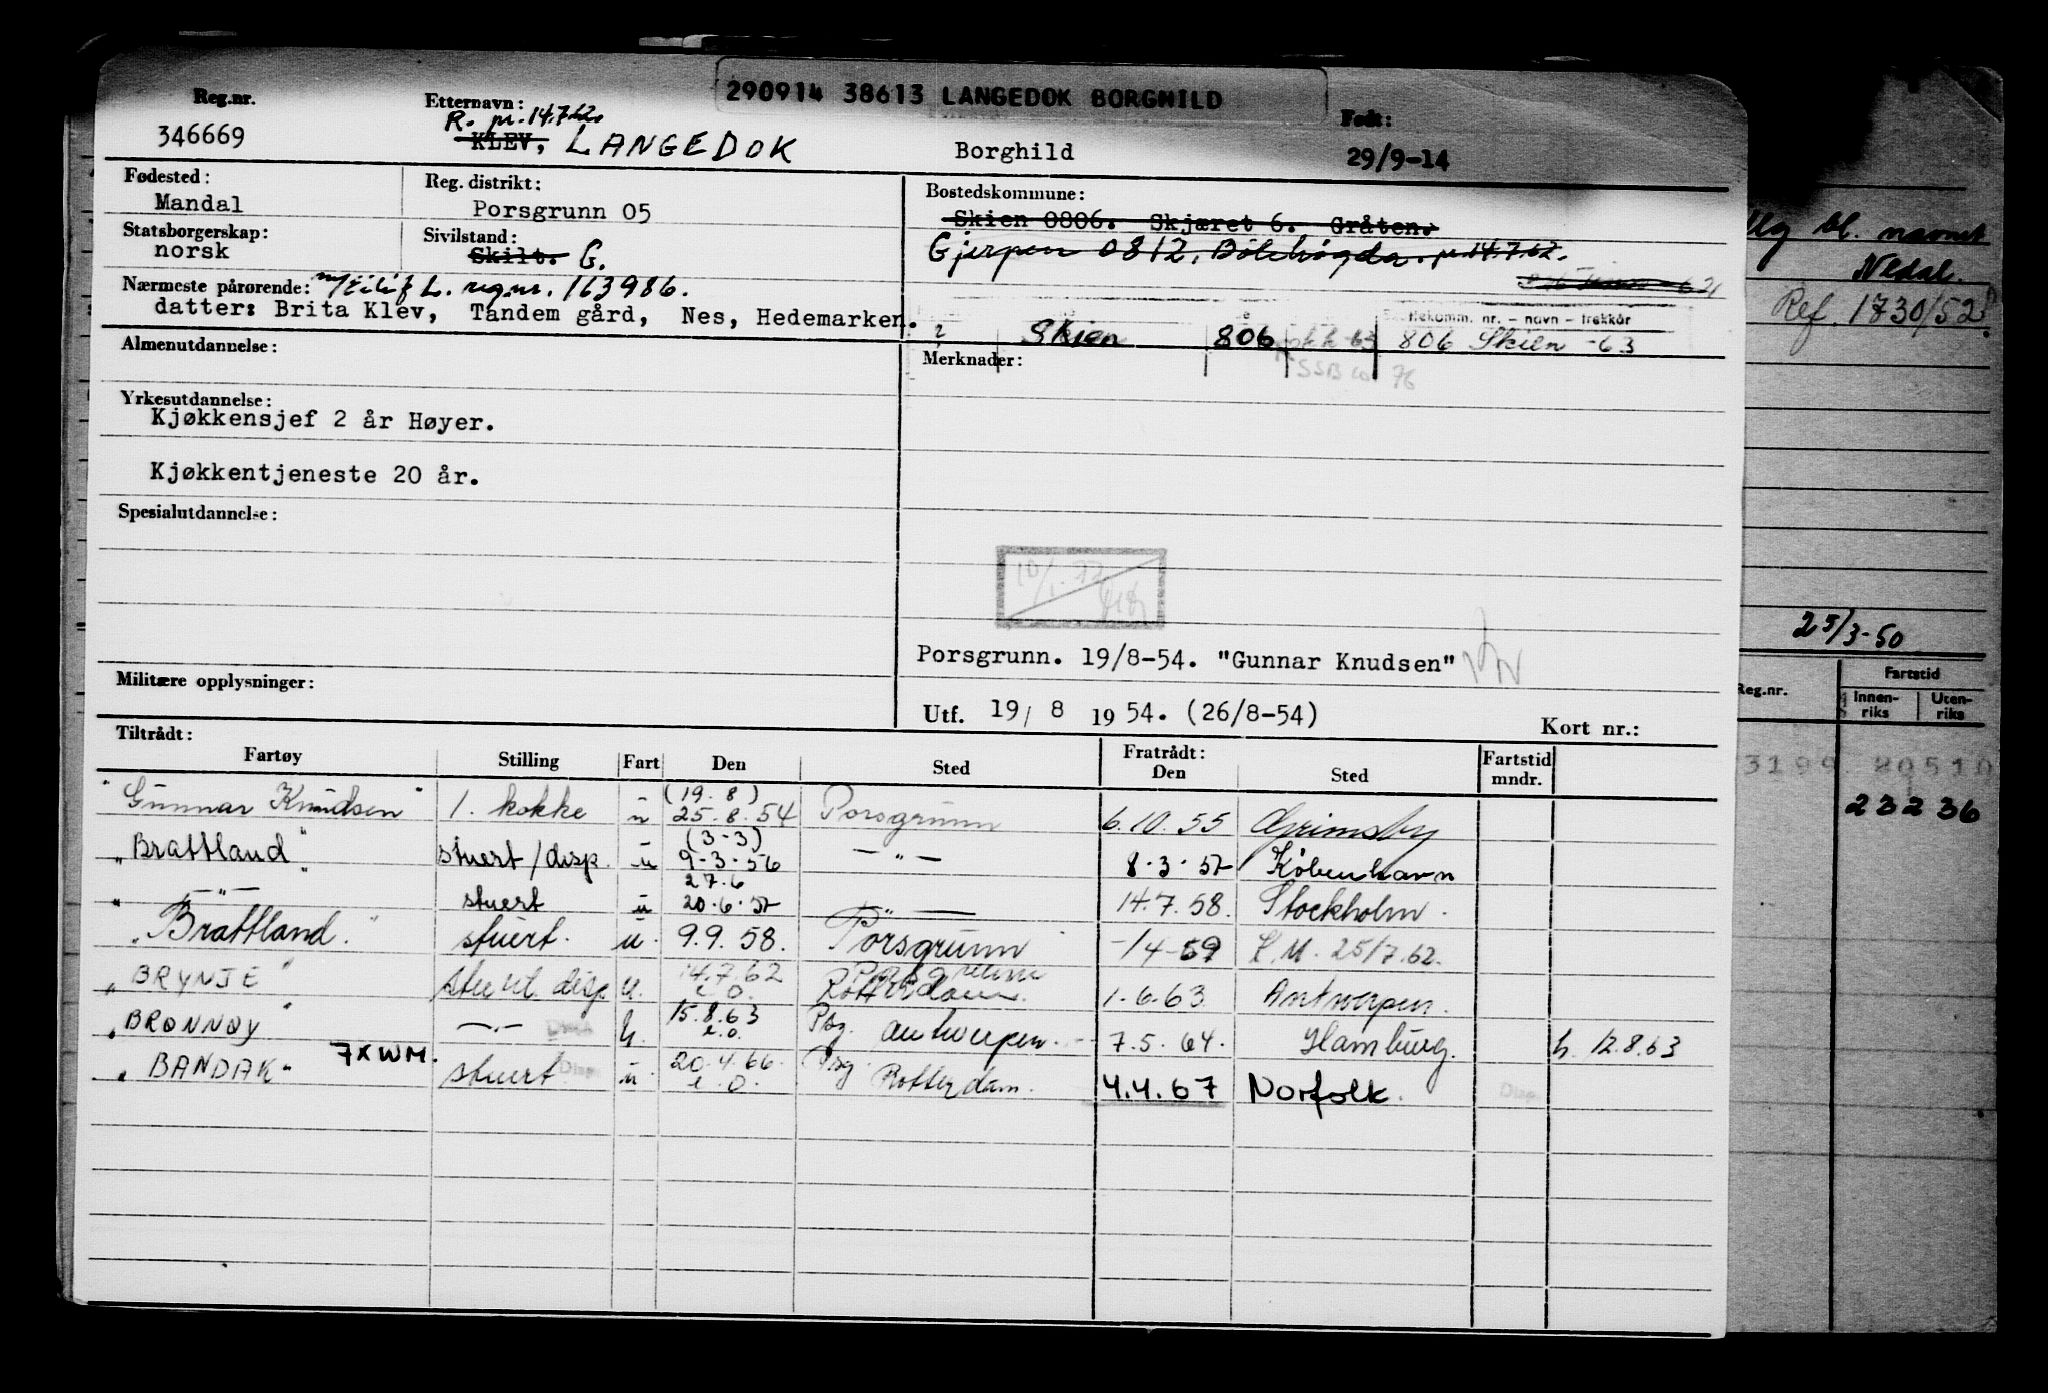 290914 38613 LANGEDOK BORGHILD
Reg.nr. Etternavn: Født:
R. pr. 14.7.62
346669 KLEV, LANGEDOK Borghild 29/9-14
Fødested: Reg. distrikt: Bostedskommune:
Mandal Porsgrunn 05 Skien 0806. Skjæret 6. Gråten.
Statsborgerskap: Sivilstand: Gjerpen 0812, Bölehögda. pr. 14.7.62.
norsk Skilt. G.
Nærmeste pårørende: m/Eilif L. regnr. 163986.
datter: Brita Klev, Tandem gård, Nes, Hedemarken.
tekomm. nr. - navn - trekkår
Skien 806 806 Skien -63
Almenutdannelse: Merknader:
SSB 76
Yrkesutdannelse:
Kjøkkensjef 2 år Høyer.
Kjøkkentjeneste 20 år.
Spesialutdannelse:
10/1.72
Porsgrunn. 19/8-54. "Gunnar Knudsen"
Militære opplysninger:
Utf. 19/ 8 1954. (26/8-54) Kort nr.:
Tiltrådt: Fratrådt: Fartstid
Fartøy Stilling Fart Den Sted Den Sted mndr.
(19.8)
"Gunnar Knudsen" 1. kokke u 25.8.54 Porsgrunn 6.10.55 Grimsby
(3-3)
"Brattland" stuert/disp. u 9-3-56 — " — 8.3.57 København
27.6
" — " — stuert u 20.6.57 — " — 14.7.58. Stockholm.
"Brattland." stuert. u. 9.9.58. Porsgrunn -/4-59 S.M. 25/7.62.
"BRYNJE" stuert disp u. 14.7.62 Porsgrunn
e.o. Rotterdam. 1.6.63 Antwerpen.
"BRØNNØY" — " — Disp. h. 15.8.63 Psg.
e.o. Antwerpen. 7.5.64. Hamburg. h. 12.8.63
"BANDAK" 7XWM. stuert Disp. u. 20.4.66 Psg
e.o. Rotterdam. 4.4.67 Norfolk. Disp.
bl. navnet
Nedal.
Ref. 1730/52
25/3-50
Reg.nr. Fartstid
Innen-riks Uten-riks
3199 80510
23236